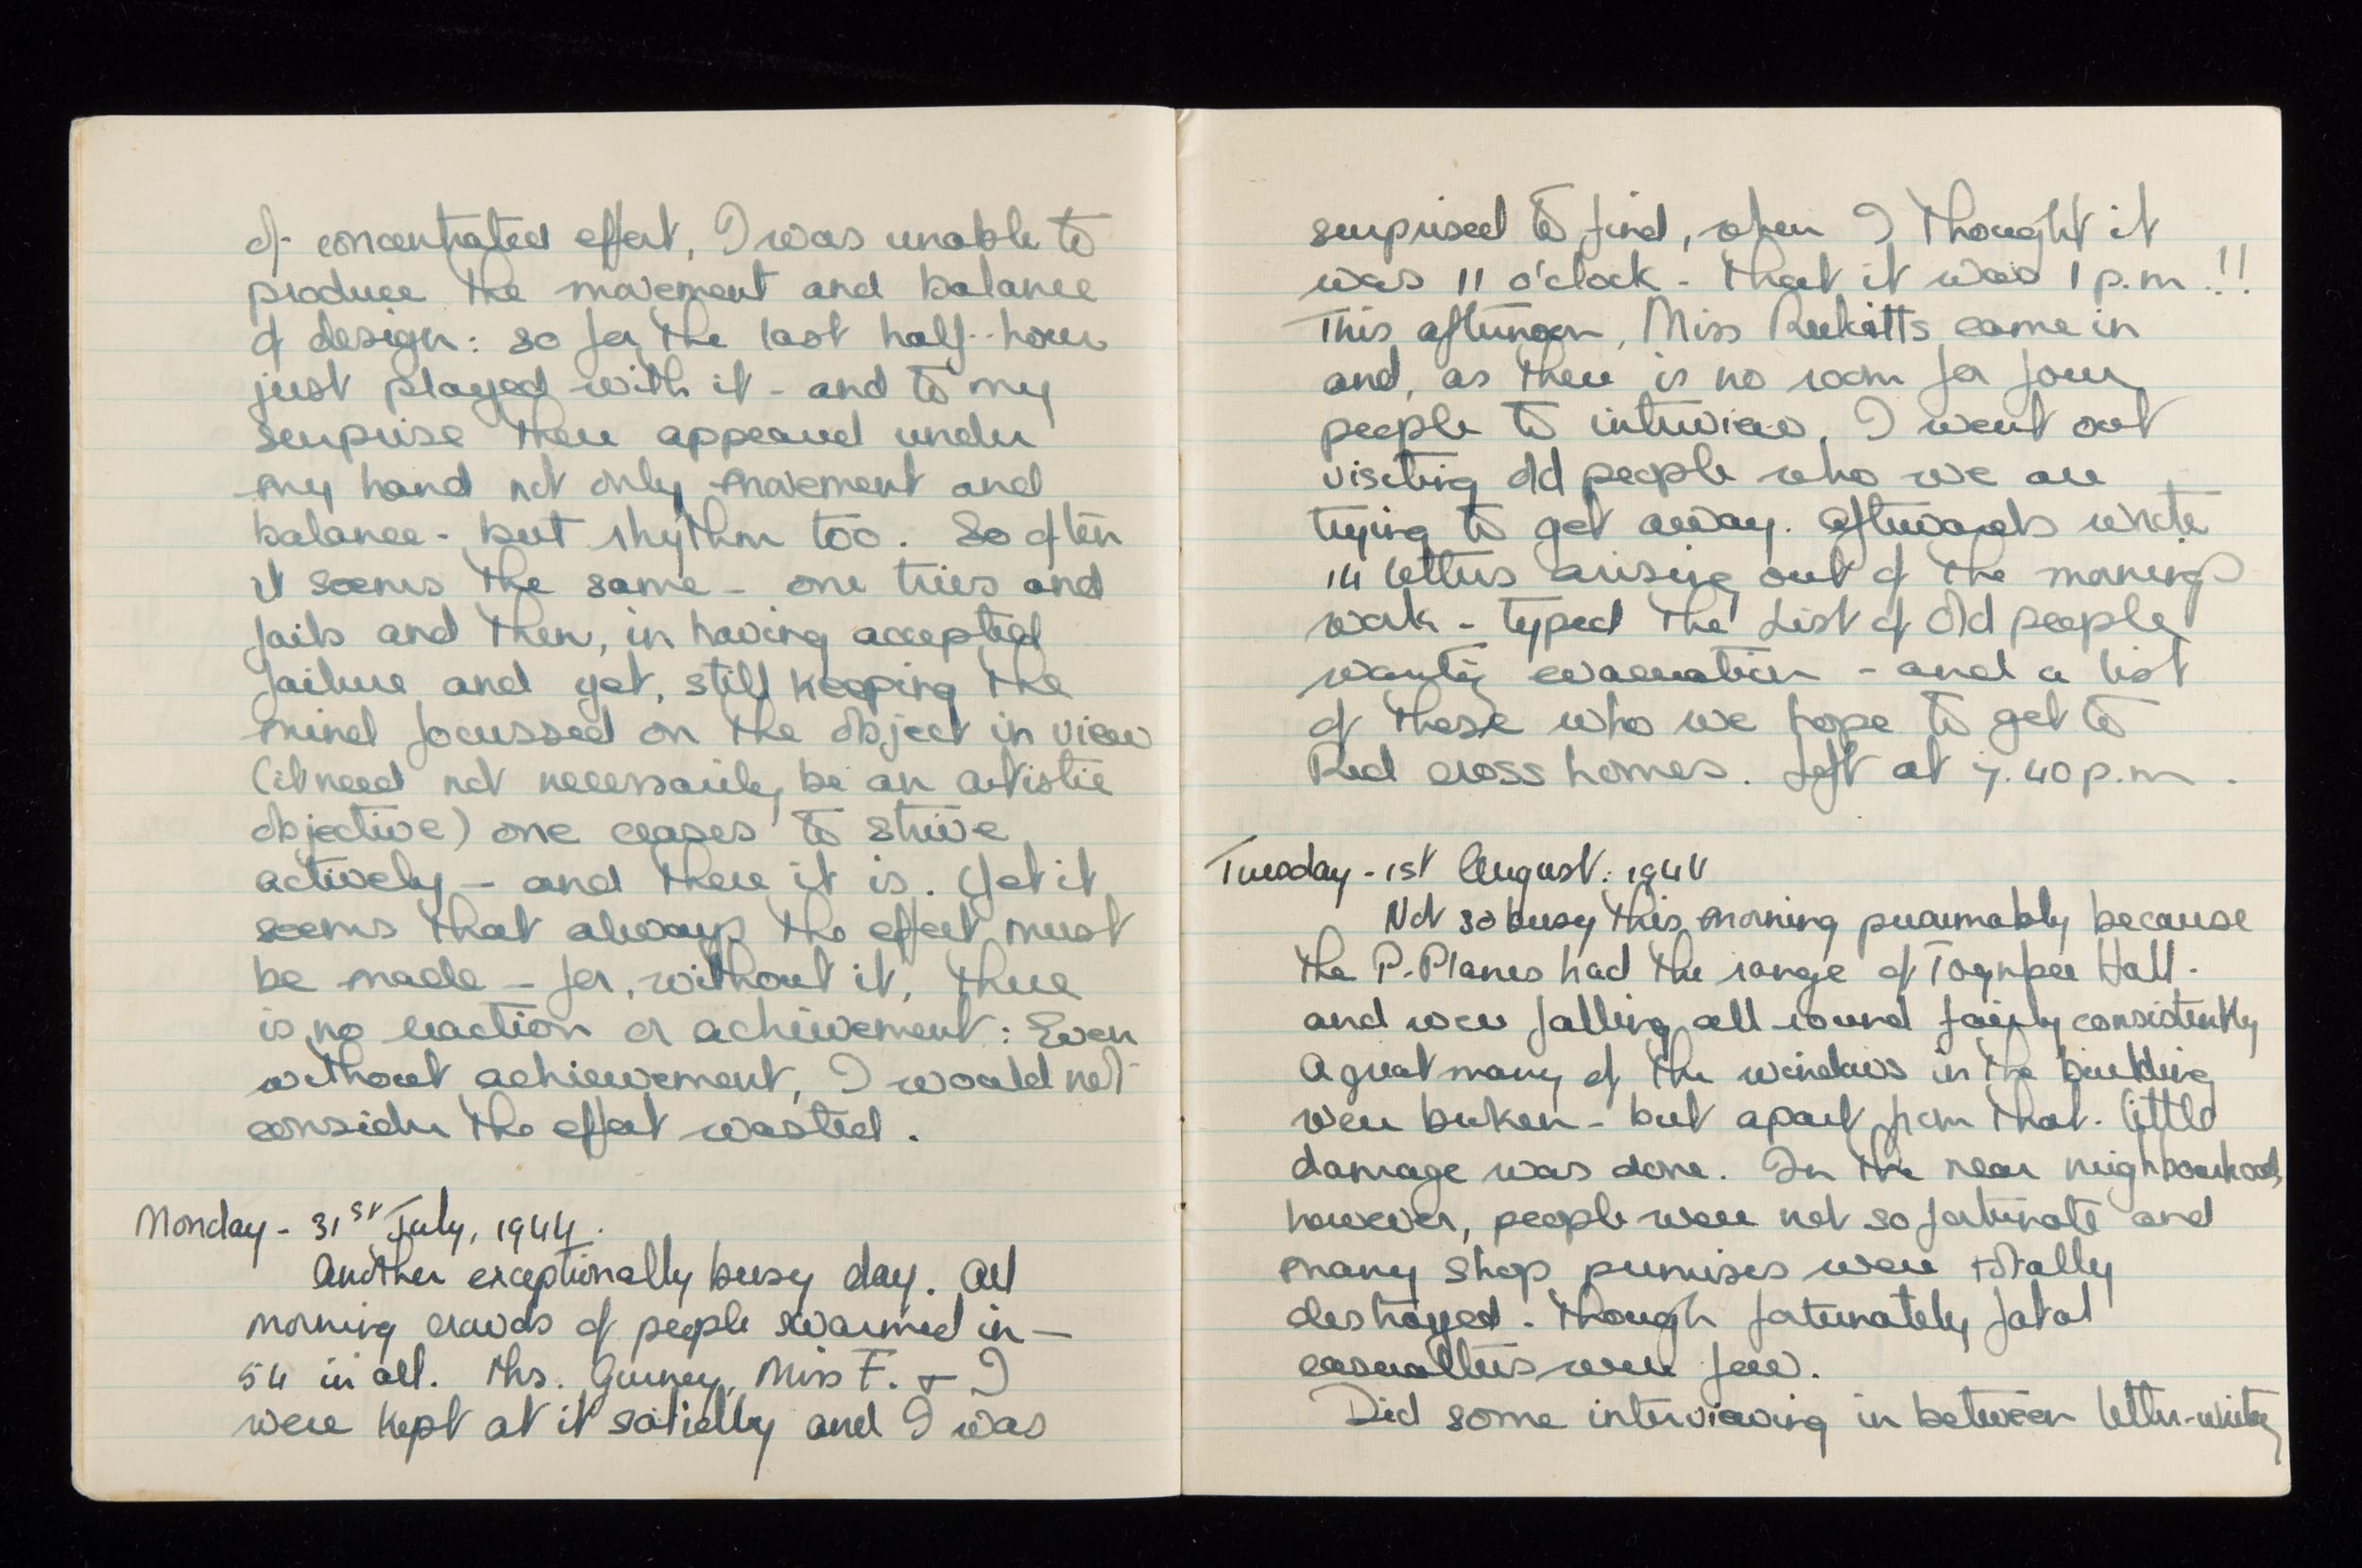 of concentrated effort, I was unable to
produce the movement and balance
of design: so for the last half-hour
just played with it - and to my
surprise there appeared under
my hand not only movement and
balance - but rhythm too. So often
it seems the same - one tries and
fails and then, in having accepted
failure and yet, still keeping the
mind focussed on the object in view
(it need not necessarily be an artistic
objective) one ceases to strive
actively - and there it is. Yet it
seems that always the effort must
be made - for, without it, there
is no reaction or achievement: Even
without achievement, I would not
consider the effort wasted.
Monday - 31st July, 1944.
Another exceptionally busy day. All
morning crowds of people swarmed in -
54 in all. Mrs. Gurney, Miss F. + I
were kept at it solidly and I was
surprised to find, when I thought it
was 11 o'clock - that it was 1 p.m!!
This afternoon, Miss Ricketts came in
and, as there is no room for four
people to interview, I went out
visiting old people who we are
trying to get away. Afterwards wrote
14 letters arising out of the mornings
work - typed the List of Old people
wanting evacuation - and a list
of those who we hope to get to
Red cross homes. Left at 7.40 p.m.
Tuesday - 1st August. 1944
Not so busy this morning presumably because
the P. Planes had the range of Toynbee Hall.
and were falling all round fairly consistently
A great many of the windows in the building
were broken - but apart from that. little
damage was done. In the near neighbourhood,
however, people were not so fortunate and
many shop premises were totally
destroyed. though fortunately fatal
casualties were few.
Did some interviewing in between letter-writing